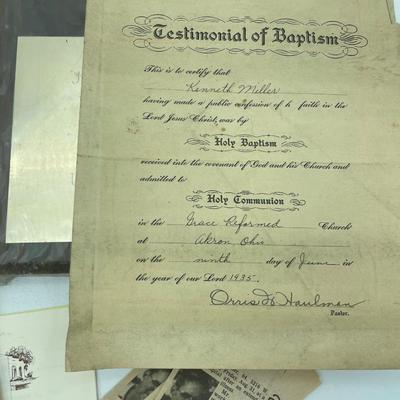 Testimonial of Baptism
This is to certify that
Kenneth Miller
having made a public confession of h faith in the
Lord Jesus Christ, was by
Holy Baptism
received into the covenant of God and his Church and
admitted to
Holy Communion
in the Grace Reformed Church
at Akron Ohio
on the ninth day of June in
the year of our Lord 1935.
Orris W Haulman
Pastor.